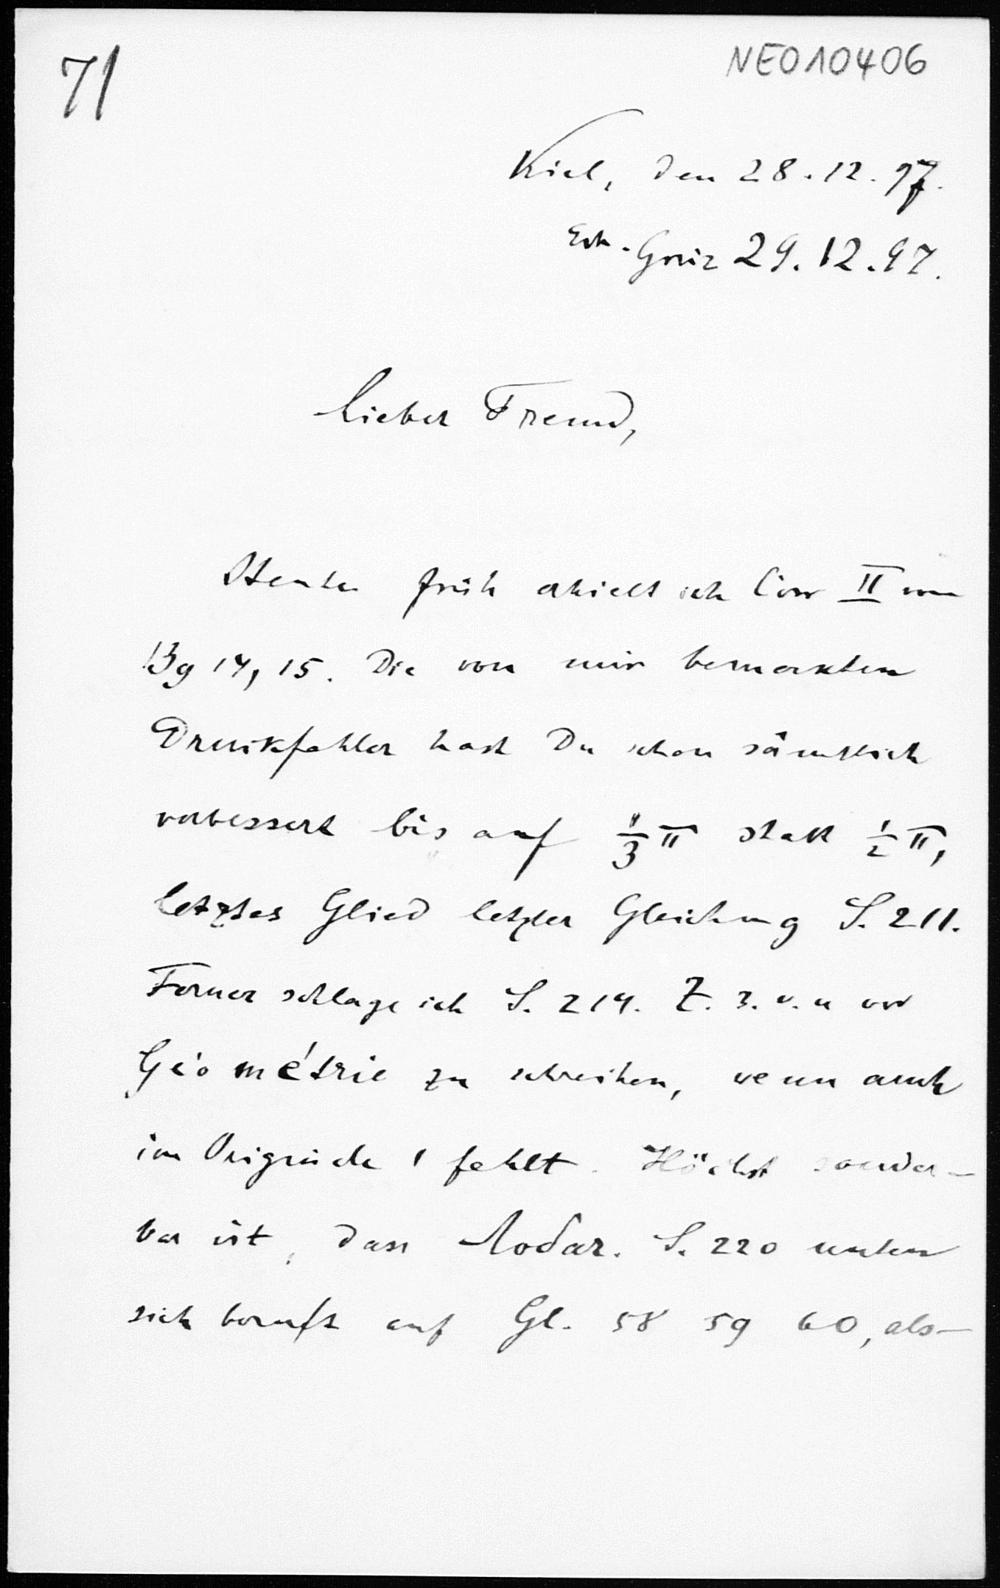 71
NE010406
Kiel, den 28.12.97.
Erh. Greiz 29.12.97.
Lieber Freund,
Heute früh erhielt ich Corr II von
Bg 14, 15. Die von mir bemerkten
Druckfehler hast Du schon sämtlich
verbessert bis auf 1/3 π statt 1/2 π,
letztes Glied letzter Gleichung S. 211.
Ferner schlage ich S. 214. Z. 3. v. u vor
Géométrie zu schreiben, wenn auch
im Originale ' fehlt. Höchst sonder-
bar ist, dass Lodar. S. 220 unten
sich beruft auf Gl. 58 59 60, als-